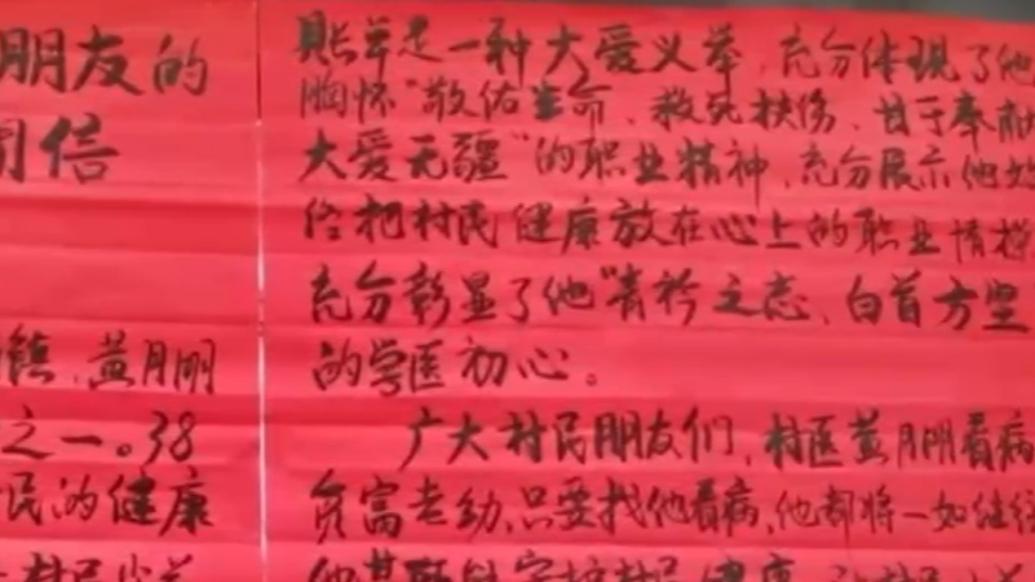 朋友的
倍
镇、黄月朋
之一。38
民的健康
账单是一种大爱义举,充分体现了他
胸怀“敬佑生命、救死扶伤、甘于奉献
大爱无疆”的职业精神,充分展示他始
终把村民健康放在心上的职业情操
充分彰显了他“青衿之志、白首方坚
的学医初心。
广大村民朋友们,村医黄月朋看病
贫富老幼,只要找他看病,他都将一如往